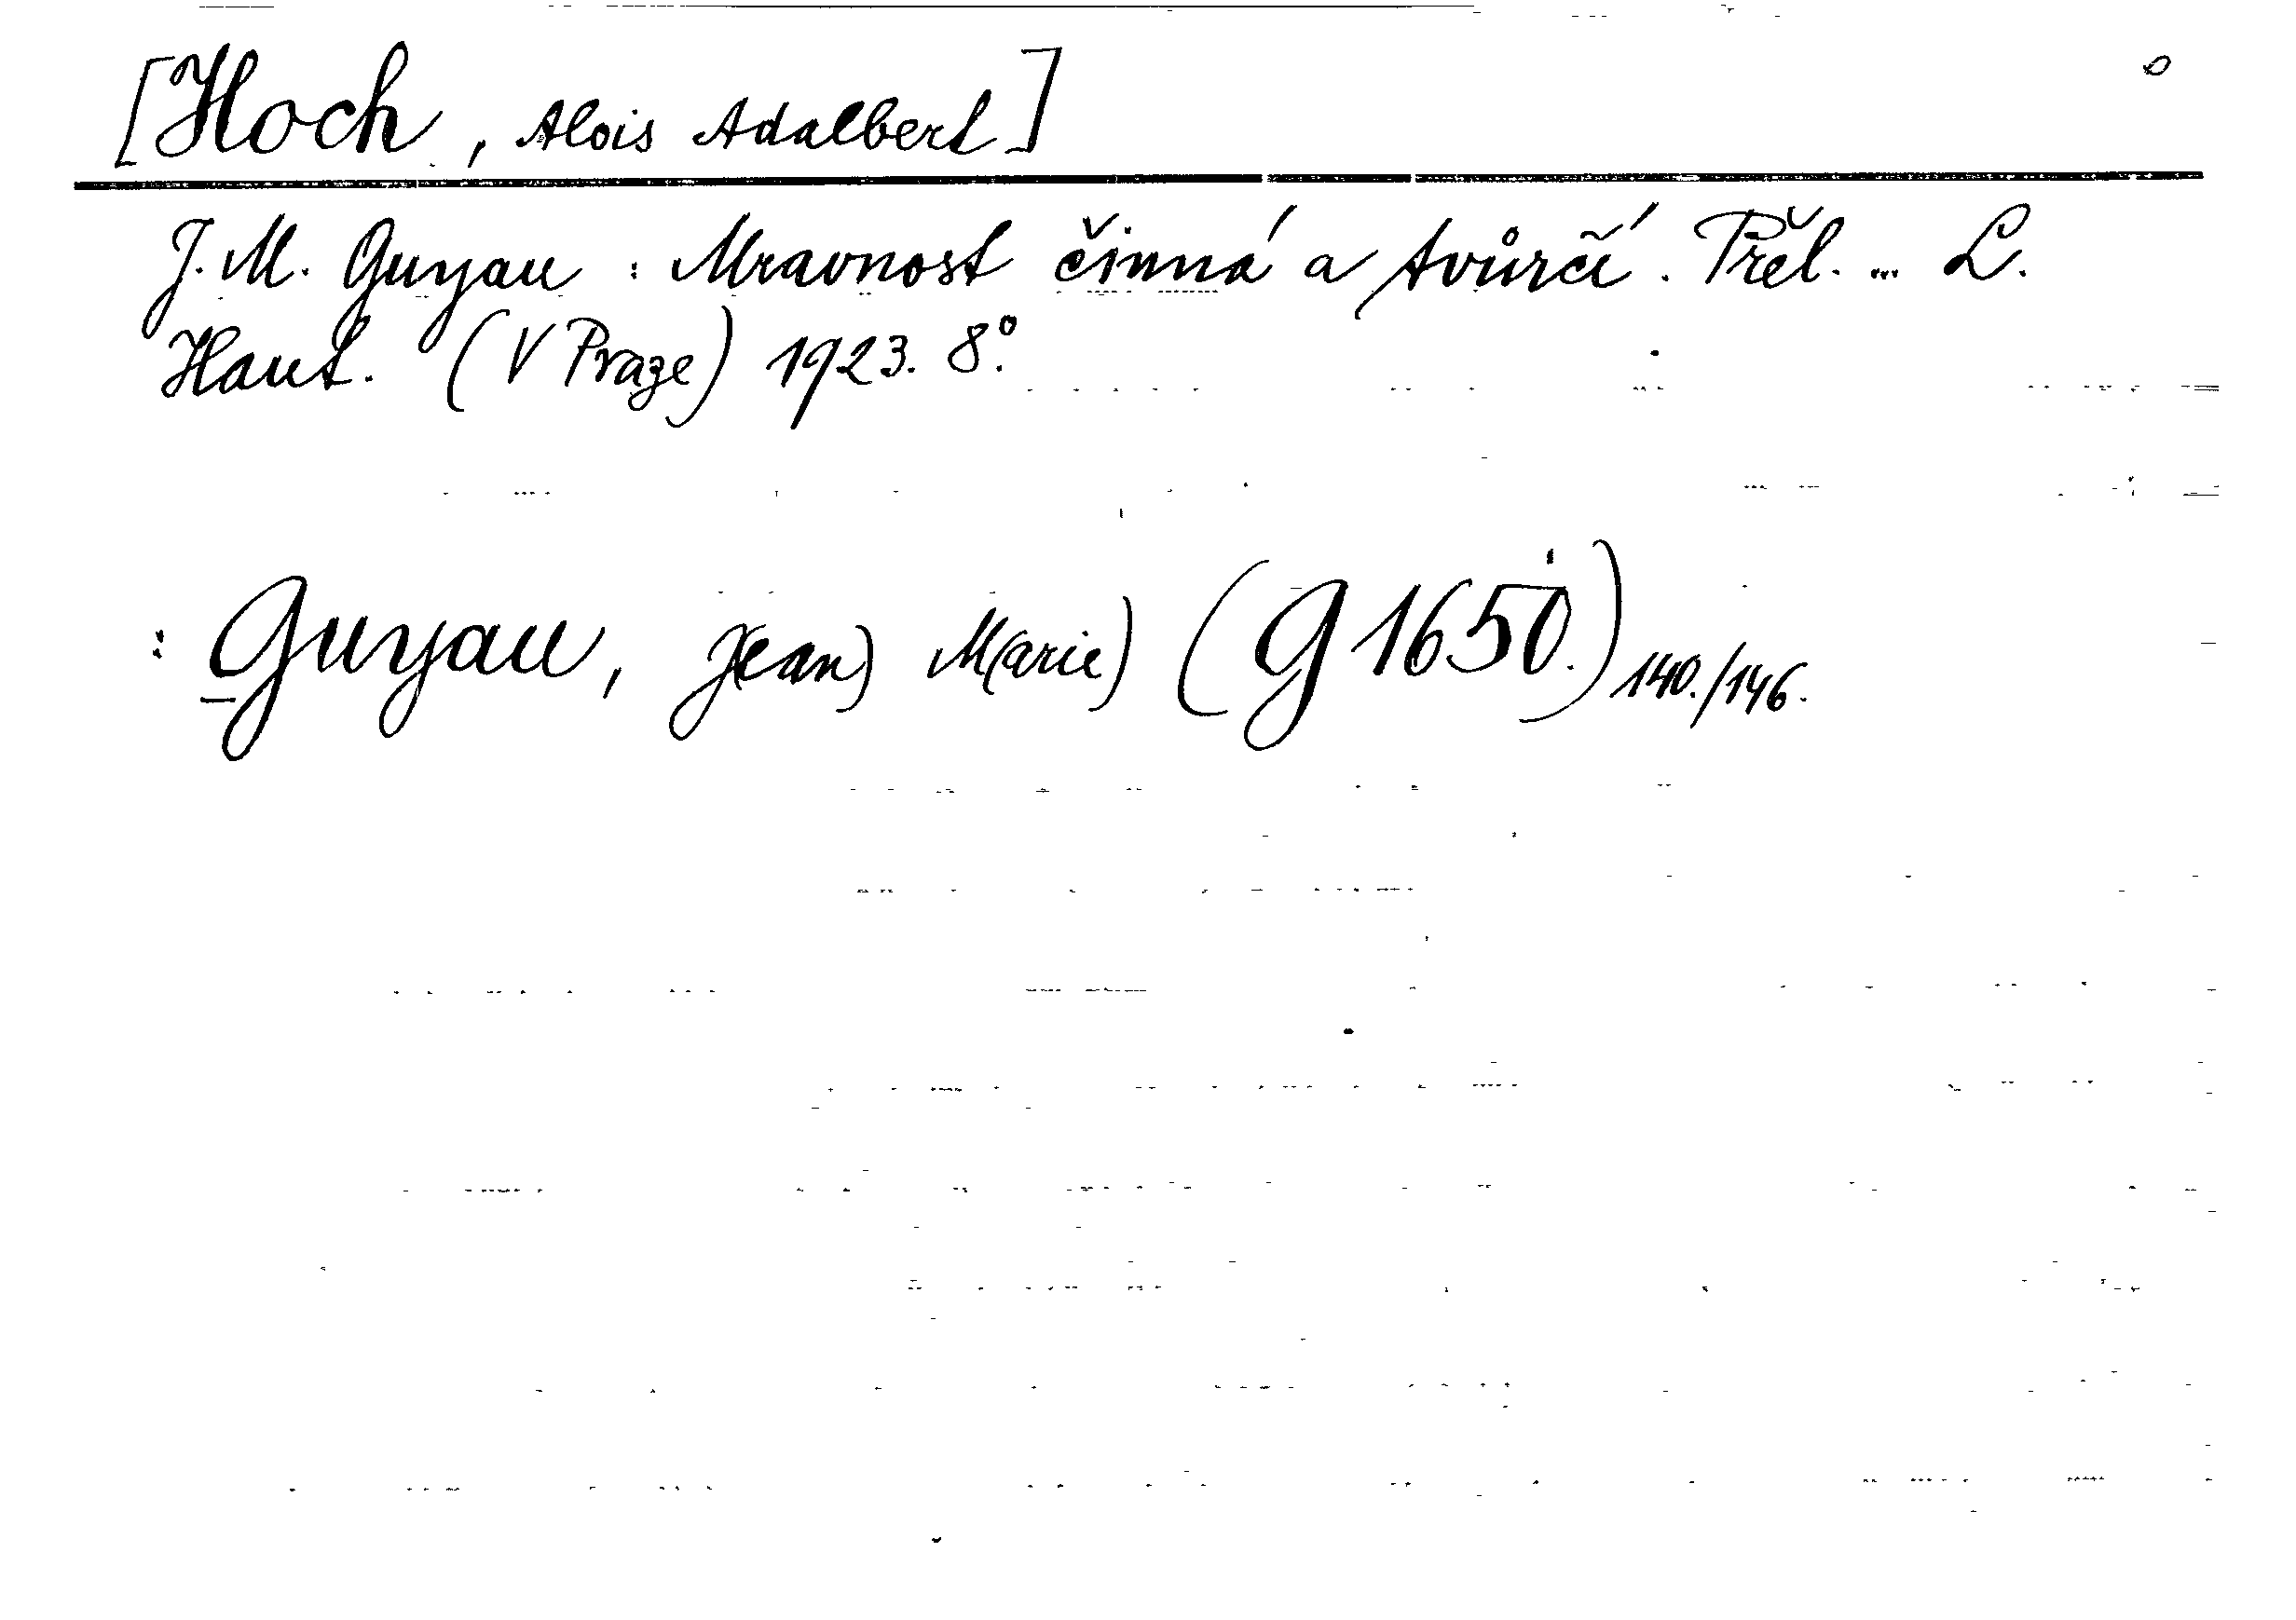 [Hoch, Alois Adalbert]
J. M. Guyau : Mravnost činná a tvůrčí. Přel. ... L.
Haut. (V Praze) 1923. 8°.
: Guyau, J(ean) M(arie) (G 1650.) 140./146.